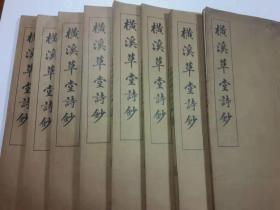 橫溪草堂詩鈔
橫溪草堂詩鈔
橫溪草堂詩鈔
橫溪草堂詩鈔
橫溪草堂詩鈔
橫溪草堂詩鈔
橫溪草堂詩鈔
橫溪草堂詩鈔